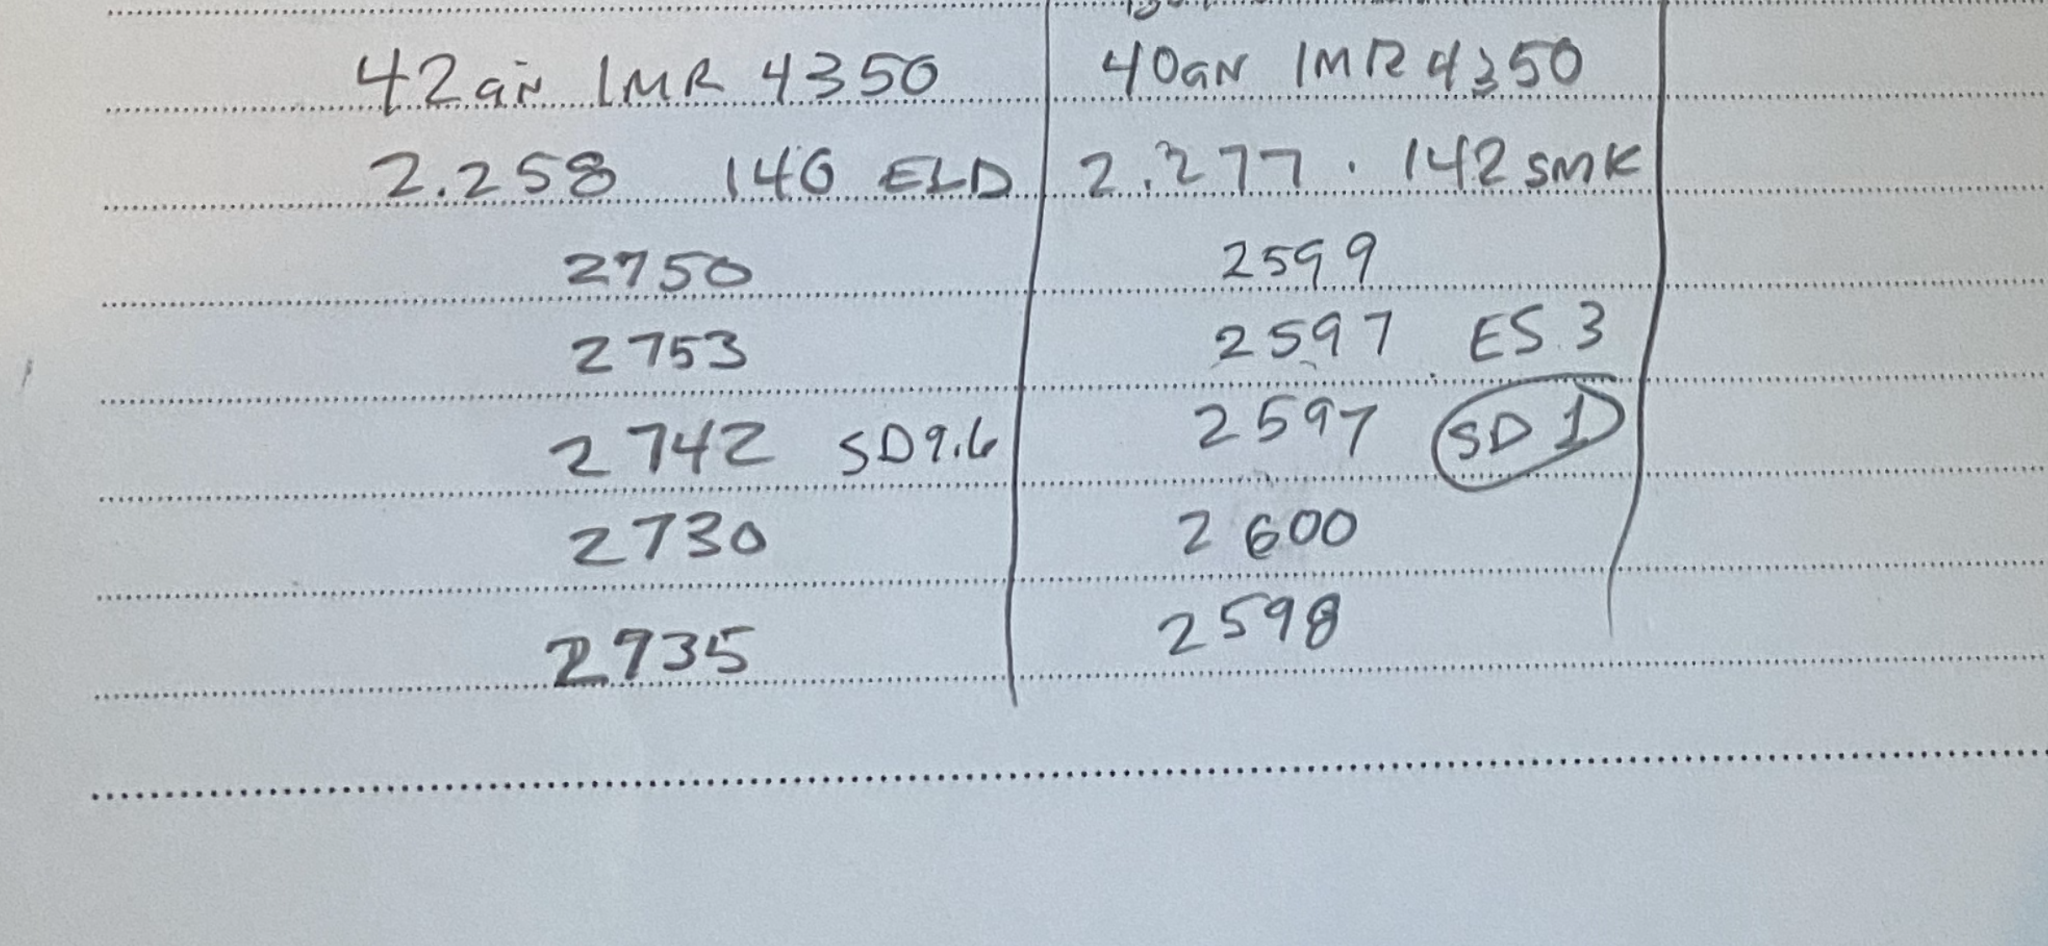 42gn IMR 4350
2.258 140 ELD
2750
2753
2742 SD 9.6
2730
2735
40gn IMR 4350
2.277. 142 SMK
2599
2597 ES 3
2597 SD 1
2600
2598